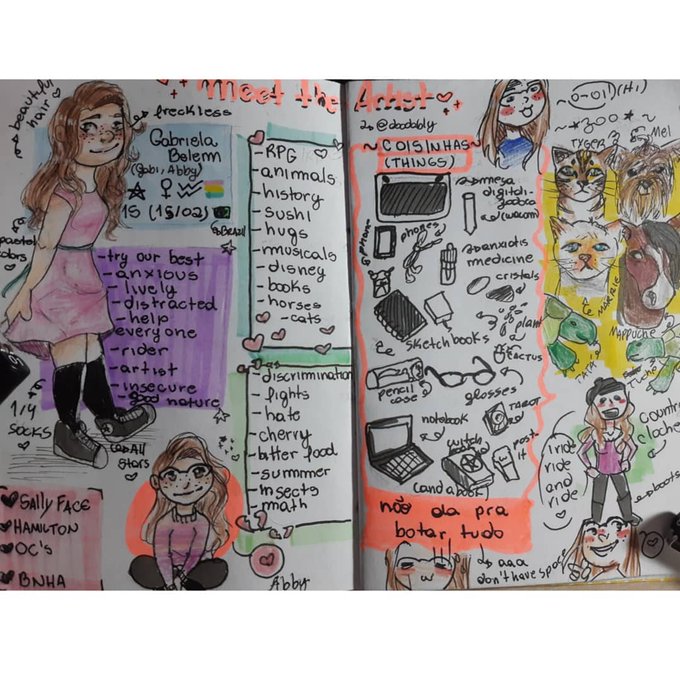 Meet the Artist
beautiful
hair
freckless
Gabriela
Belem
(Gabi, Abby)
15 (15/02)
BRAZIL
pastel
colors
-try our best
-anxious
-lively
-distracted
-help
everyone
-rider
-artist
-insecure
-good nature
1/4
socks
all
stars
SALLY FACE
HAMILTON
OC's
BNHA
-RPG
-animals
-history
-sushi
-hugs
-musicals
-disney
-books
-horses
-cats
-discrimination
-fights
-hate
-cherry
-bitter food
-summmer
-insects
-math
Abby
~COISINHAS~
(THINGS)
mesa
digital-
(wacom)
phone
phones
anxiotis
medicine
cristals
sketchbooks
plant
cactus
pencil
case
glosses
TAROT
notebook
switch
post-
it
and a book
não da pra
botar tudo
aaa
don't have space
(HI)
~*ZOO*~
TYGER
Mel
MAPPUCHE
TATA
Tucho
Country
Cloches
I ride
ride
and
ride
boots